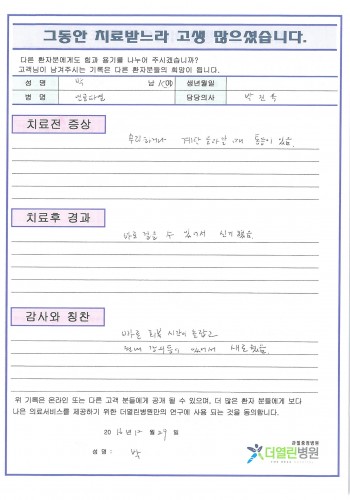 그동안 치료받느라 고생 많으셨습니다.
다른 환자분에게도 힘과 용기를 나누어 주시겠습니까?
고객님이 남겨주시는 기록은 다른 환자분들의 희망이 됩니다.
성 명 박 남 생년월일
병 명 담당의사 박진욱
치료전 증상
계단 때 통증이 있음
치료후 경과
바로 걸을 수 있어서 신기했음
감사와 칭찬
바로 회복 시간이
있어서
위 기록은 온라인 또는 다른 고객 분들에게 공개 될 수 있으며, 더 많은 환자 분들에게 보다
나은 의료서비스를 제공하기 위한 더열린병원만의 연구에 사용 되는 것을 동의합니다.
2016년 12월 29일
성 명 : 박
관절중점병원
더열린병원